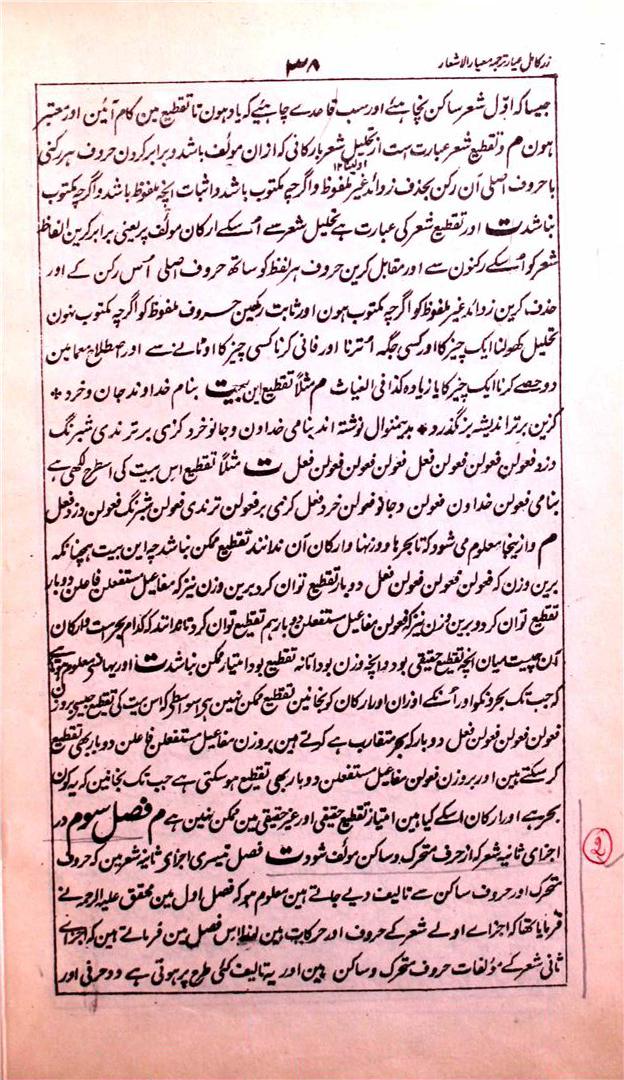 زر کامل عیار ترجمہ معیار الاشعار
۳۸
جیسا کہ اول شعر ساکن نچاہیئے اور سب قاعدے چاہیئے کہ یاد ہون تا تقطیع مین کام آئین اور معتبر
ہون م و تقطیع شعر عبارت ست از تحلیل شعر بارکانی کہ ازان مولف باشد و برابر کردن حروف ہر رکنی
با حروف اصلی آن رکن بحذف زوائد غیر ملفوظ و اگرچہ مکتوب باشد و اثبات انچہ ملفوظ باشد و اگرچہ مکتوب
نباشد ت اور تقطیع شعر کی عبارت ہے تحلیل شعر سے اُسکے ارکان مولف پر یعنی برابر کرین الفاظ
شعر کو اُسکے رکنون سے اور مقابل کرین حروف ہر لفظ کو ساتھ حروف اصلی اُس رکن کے اور
حذف کرین زوائد غیر ملفوظ کو اگرچہ مکتوب ہون اور ثابت رکھین حروف ملفوظ کو اگرچہ مکتوب نہون
تحلیل کھولنا ایک چیز کا اور کسی جگہ اُترنا اور فانی کرنا کسی چیز کا اوٹانے سے اور اصطلاح معامین
دو حصے کرنا ایک چیز کا یا زیادہ کذا فی الغیاث م مثلاً تقطیع این بیت بنام خداوند جان و خرد *
کزین برتر اندیشہ بر نگذرد * بدینمنوال نوشتہ اند بنامی خداون و جانو خرد کزی بر تر ندی شبرنگ
درد فعولن فعولن فعولن فعل فعولن فعولن فعولن فعل ت مثلاً تقطیع اس بیت کی اسطرح لکھی ہے
بنامی فعولن خداون فعولن دجانو فعولن خرد فعل کزی بر فعولن ترندی فعولن شبرنگ فعولن درد فعل
م و ازینجا معلوم می شود کہ تا بحرہا و وزنہا و ارکان آن ندانند تقطیع ممکن نباشد چہ این بیت ہمچنانکہ
برین وزن کہ فعولن فعولن فعولن فعل دوبار تقطیع توان کرد برین وزن نیز کہ مفاعیل مستفعلن فاعلن دوبار
تقطیع توان کرد و برین وزن نیز کہ فعولن مفاعیل مستفعلن دوبار ہم تقطیع توان کرد تا ندانند کہ کدام بحرست و ارکان
آن چیست میان انچہ تقطیع حقیقی بود و انچہ وزن بود انہ تقطیع بود امتیاز ممکن نباشد ت اور یہانسے معلوم ہوتا ہے
کہ جب تک بحر ونکو اور اُنکے اوزان اور ارکان کو نجانین تقطیع ممکن نہین ہی اسواسطے کہ اس بیت کی تقطیع جیسے بروزن
فعولن فعولن فعولن فعل دوبار کہ بحر متقارب ہے کرتے ہین بروزن مفاعیل مستفعلن فاعلن دوبار بھی تقطیع
کر سکتے ہین اور بروزن فعولن مفاعیل مستفعلن دوبار بھی تقطیع ہو سکتی ہے جب تک نجانین کہ یہ کون
بحر ہے اور ارکان اسکے کیا ہین امتیاز تقطیع حقیقی اور غیر حقیقی مین ممکن نہین ہے م فصل سوم در
اجزای ثانیہ شعر کہ از حرف متحرک و ساکن مولف شود ت فصل تیسری اجزای ثانیہ شعر مین کہ حروف
متحرک اور حروف ساکن سے تالیف دیے جاتے ہین معلوم ہو کہ فصل اول مین محقق علیہ الرحمہ نے
فرمایا تھا کہ اجزاے اولے شعر کے حروف اور حرکات ہین لہذا اس فصل مین فرماتے ہین کہ اجزاے
ثانی شعر کے مؤلفات حروف متحرک و ساکن ہین اور یہ تالیف کئی طرح پر ہوتی ہے دو حرفی اور
2